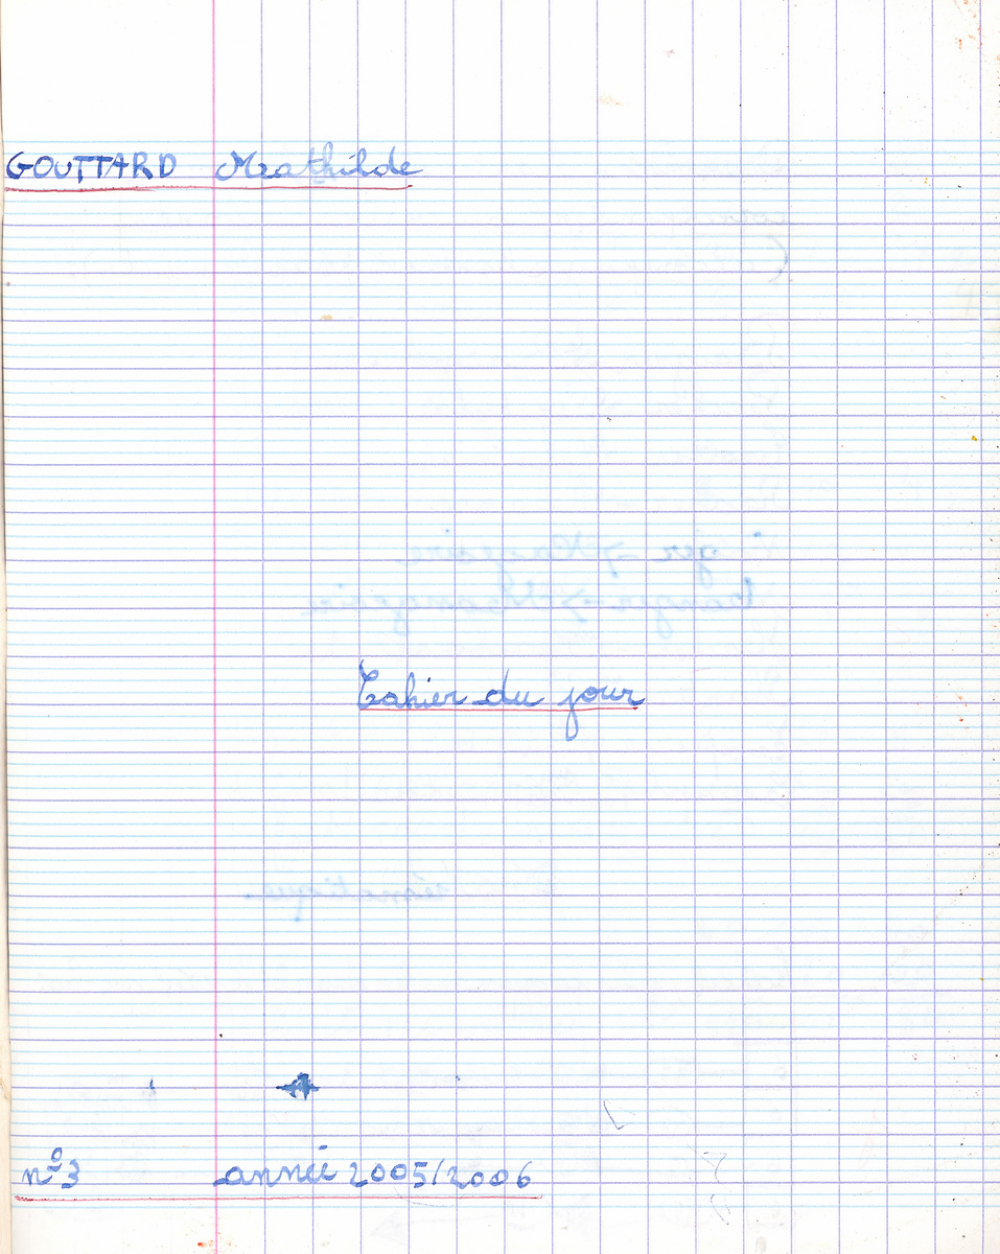 GOUTTARD Mathilde
Cahier du jour
n°3 année 2005/2006